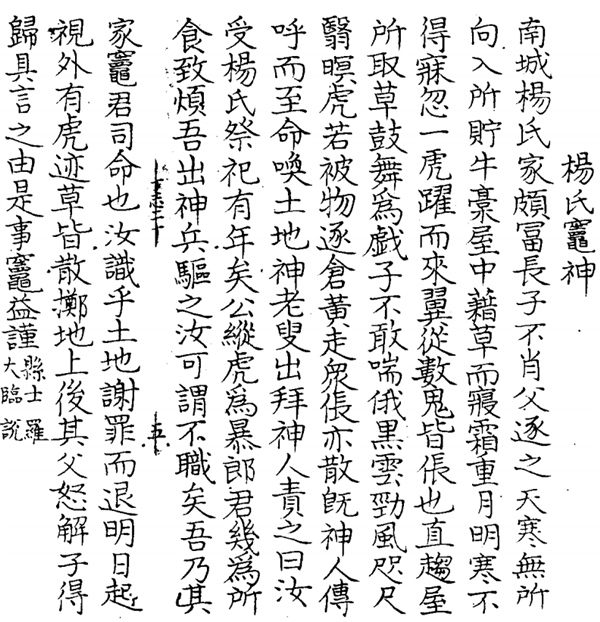 楊氏竈神
南城楊氏家頗冨長子不肖父逐之天寒無所
向入所貯牛藁屋中藉草而寢霜重月明寒不
得寐忽一虎躍而來翼從數鬼皆倀也直趨屋
所取草鼓舞爲戲子不敢喘俄黒雲勁風咫尺
翳暝虎若被物逐倉黃走衆倀亦散旣神人傳
呼而至命喚土地神老叟出拜神人責之曰汝
受楊氏祭祀有年矣公縱虎爲暴郎君幾爲所
食致煩吾出神兵驅之汝可謂不職矣吾乃其
家竈君司命也汝識乎土地謝罪而退明日起
視外有虎迹草皆散擲地上後其父怒解子得
歸具言之由是事竈益謹縣士羅
大臨説
五